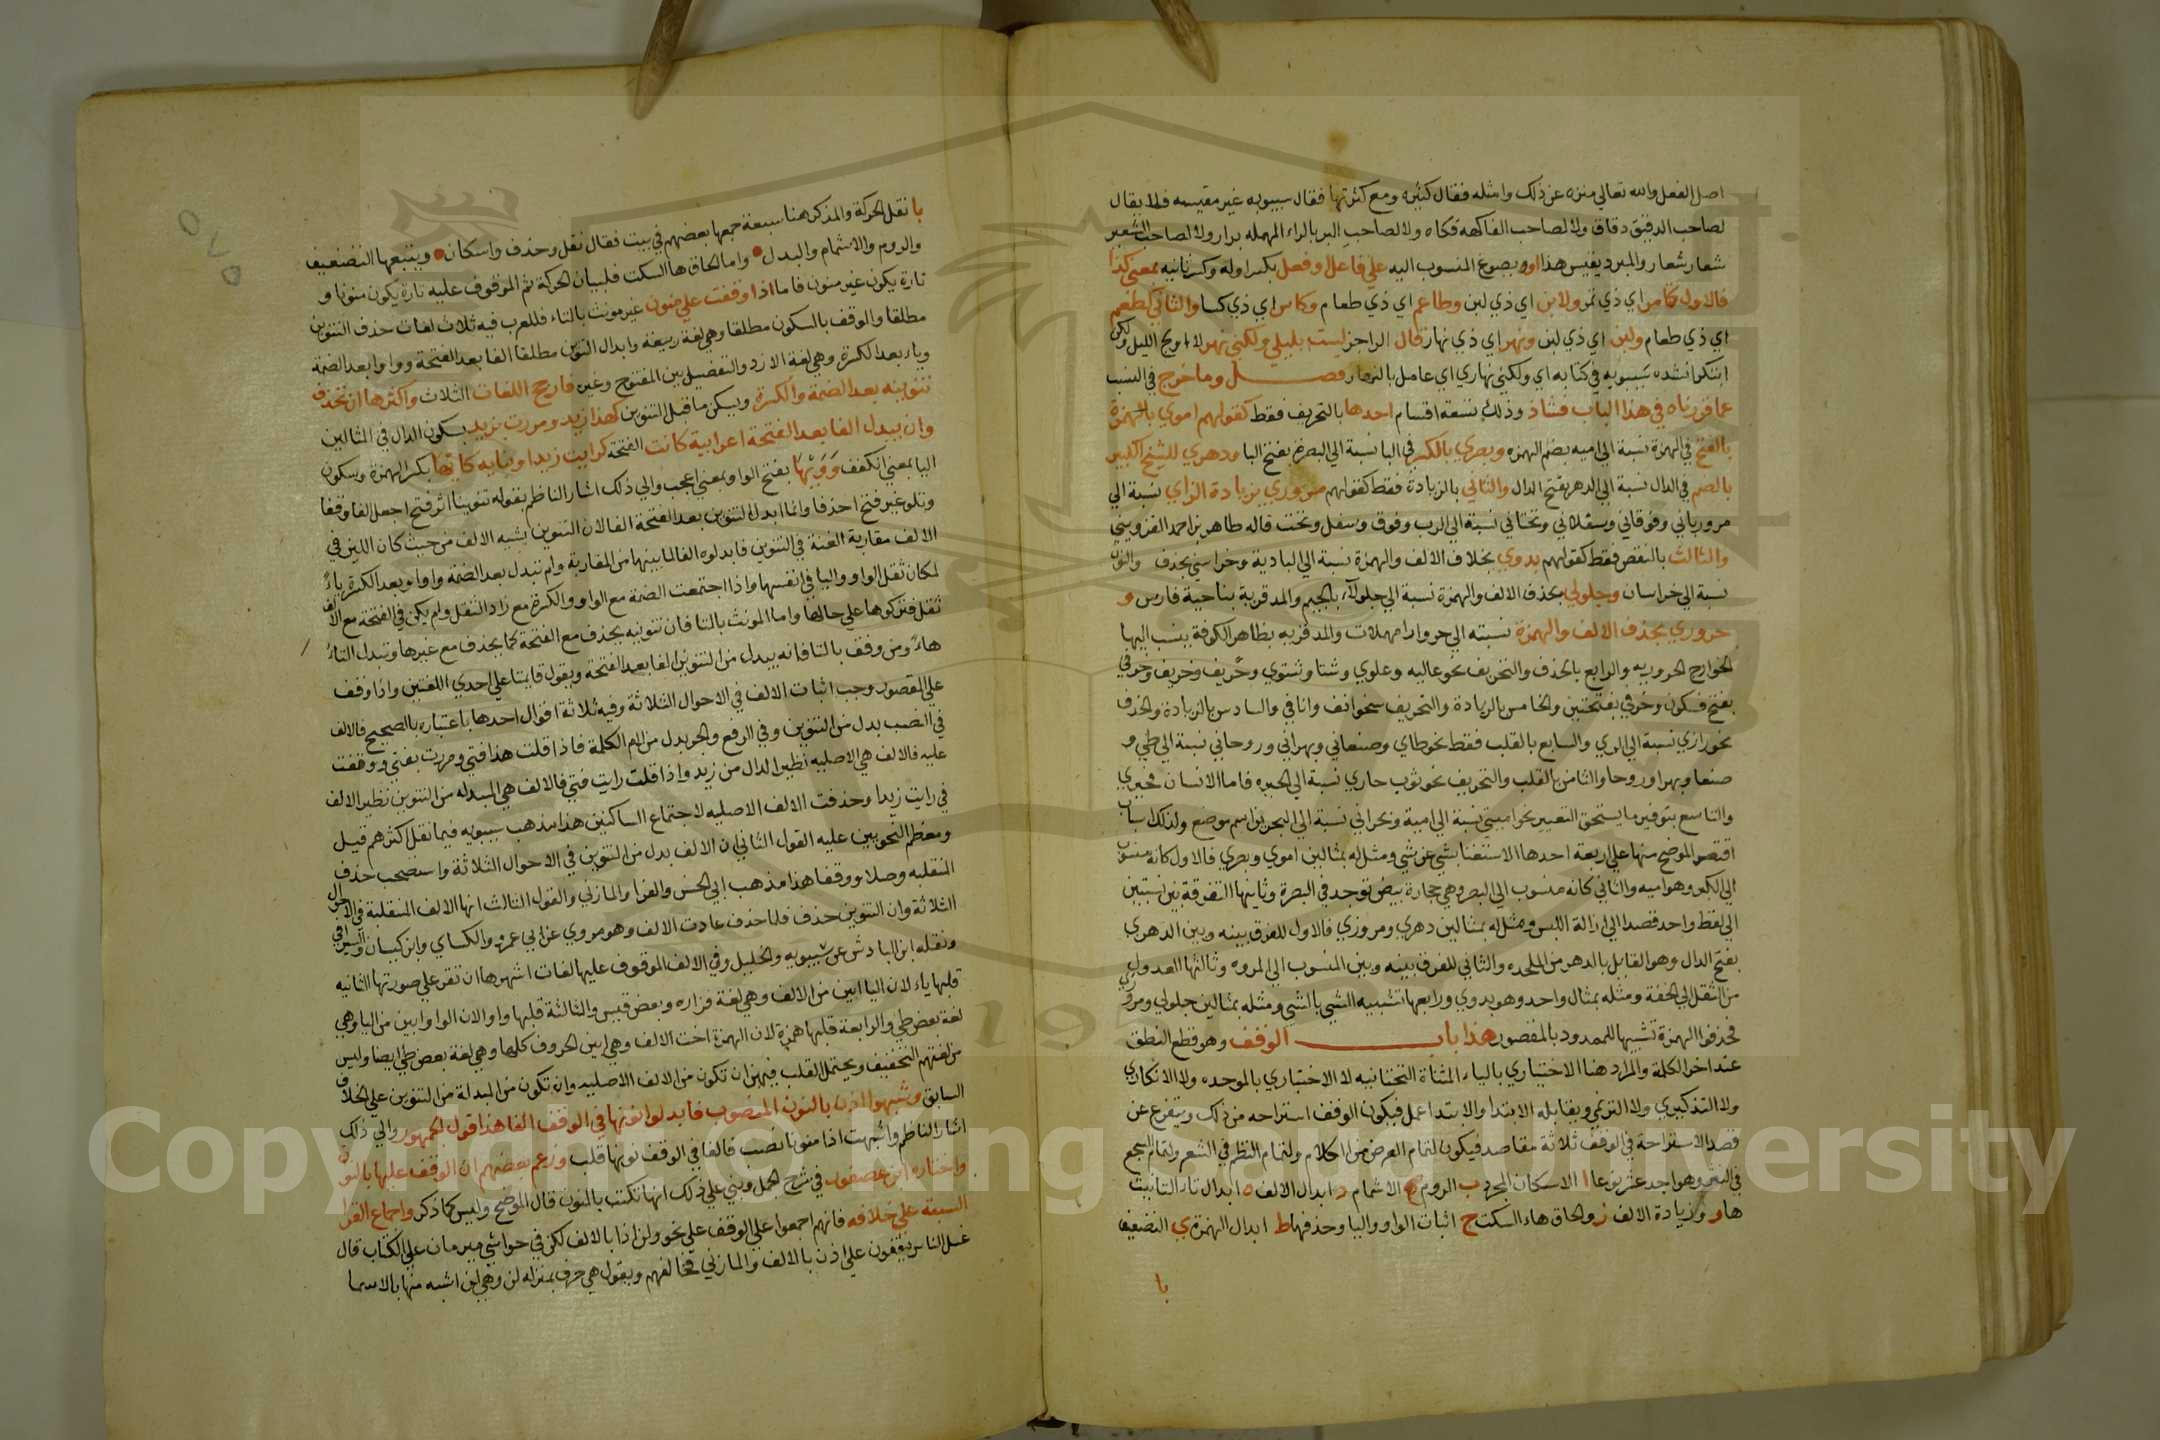 اصل الفعل والله تعالي منزه عن ذلك وامثله فعال كثيره ومع كثرتها فقال سيبويه غير مقيسه فلا يقال
لصاحب الدقيق دقاق ولا لصاحب الفاكهه فكاه ولا لصاحب البر بالراء المهمله برار ولا لصاحب الشعير
شعار والمبرد يقيس هذا او ويصوغ المنسوب اليه علي فاعل او فعل بكسر اوله وكسر ثانيه بمعني كذا
فالاول كتامر اي ذي تمر ولابن اي ذي لبن وطاعم اي ذي طعام وكاس اي ذي كسا والثاني كطعم
اي ذي طعام ولبن اي ذي لبن ونهر اي ذي نهار قال الراجز ليست بليلي ولكني نهر لا ادلج الليل ولكن
ابتكر انشده سيبويه في كتابه اي ولكني نهاري اي عامل بالنهار فصل وما خرج في النسب
عما قررناه في هذا الباب فشاذ وذلك تسعة اقسام احدها بالتحريف فقط كقولهم اموي بالهمزة
بالفتح في الهمزة نسبة الي اميه بضم الهمزه وبصري بالكسر في البا نسبة الي البصرة بفتح البا ودهري للشيخ الكبير
بالضم في الدال نسبة الي الدهر بفتح الدال والثاني بالزيادة فقط كقولهم مروزي بزيادة الزاي نسبة الي
مرو ورباني وفوقاني وسفلاني وتحتاني نسبة الي الرب وفوق وسفل وتحت قاله طاهر بن احمد القزويني
والثالث بالنقص فقط كقولهم بدوي بحذف الالف والهمزة نسبة الي البادية وخراسي بحذف والنون
نسبة الي خراسان وجلولي بحذف الالف والهمزة نسبة الي جلولاء بالجيم والمد قرية بناحية فارس و
حروري بحذف الالف والهمزة نسبته الي حروراء مهملات والمد قريه بظاهر الكوفة ينسب اليها
الخوارج الحروريه والرابع بالحذف والتحريف نحو عاليه وعلوي وشتا وشتوي وخريف وخرفي
بفتح فسكون وخرفي بفتحتين والخامس بالزيادة والتحريف نحو انف وانافي والسادس بالزيادة والحذف
نحو رازي نسبة الي الري والسابع بالقلب فقط نحو طاي وصنعاني وبهراني وروحاني نسبة الي طي و
صنعا وبهرا وروحا والثامن بالقلب والتحريف نحو ثوب حاري نسبة الي الحيره فاما الانسان فحيري
والتاسع بتوفير ما يستحق التغيير نحو اميي نسبة الي امية وبحراني نسبة الي البحرين اسم موضع ولذلك
اقتصر الموضح منها علي اربعة احدها الاستغنا بشي عن شي ومثل له بمثالين اموي وبصري فالاول كانه منسوب
الي الكبر وهو اميه والثاني كانه منسوب الي البصر وهي حجارة بيض توجد في البصرة وثانيها التفرقة بين نسبتين
الي لفظ واحد قصدا الي ازالة اللبس ومثل له بمثالين دهري ومروزي فالاول للفرق بينه وبين الدهري
بفتح الدال وهو القايل بالدهر من الملحده والثاني للفرق بينه وبين المنسوب الي المروه وثالثها العدول
من الثقل الي الخفة ومثله بمثال واحد وهو بدوي ورابعها تشبيه الشي بالشي ومثله بمثالين جلولي وحروري
فحذفوا الهمزة تشبيها للممدود بالمقصور هذا باب الوقف وهو قطع النطق
عند اخر الكلمة والمراد هنا الاختياري بالياء المثناة التحتانيه لا الاختباري بالموحده ولا الانكاري
ولا التذكيري ولا الترنمي ويقابله الابتدا والابتدا عمل فيكون الوقف استراحه من ذلك ويتفرع عن
قصد الاستراحة في الوقف ثلاثة مقاصد فيكون لتمام الغرض من الكلام ولتمام النظم في الشعر ولتمام السجع
في النثر وهو احد عشر نوعا ا الاسكان المجرد ب الروم ج الاشمام د ابدال الالف ه ابدال تاء التانيث
هاء و زيادة الالف ز والحاق هاء السكت ح اثبات الواو واليا وحذفها ط ابدال الهمزة ي التضعيف
يا
يا نقل الحركة والمذكر هنا سبعة جمعها بعضهم في بيت فقال نقل وحذف واسكان ويتبعها التضعيف
والروم والاشمام والبدل واما الحاق ها السكت فلبيان الحركة ثم الموقوف عليه تارة يكون منونا و
تارة يكون غير منون فاما اذا وقفت علي منون غير مونث بالتاء فللعرب فيه ثلاث لغات حذف التنوين
مطلقا والوقف بالسكون مطلقا وهي لغة ربيعة وابدال التنوين مطلقا الفا بعد الفتحة وواوا بعد الضمة
وياء بعد الكسرة وهي لغة الازد والتفصيل بين المفتوح وغيره فارجح اللغات الثلاث واكثرها ان تحذف
تنوينه بعد الضمة والكسرة ويسكن ما قبل التنوين كهذا زيد ومررت بزيد بسكون الدال في المثالين
وان يبدل الفا بعد الفتحة اعرابية كانت الفتحة كرايت زيدا او بنايه كايها بكسر الهمزة وسكون
اليا بمعني انكفف وويها بفتح الواو بمعني اعجب والي ذلك اشار الناظم بقوله تنوينا اثر فتح اجعل الفا وقفا
وتلو غير فتح احذفا وانما ابدل التنوين بعد الفتحة الفا لان التنوين يشبه الالف من حيث كان اللين في
الالف مقاربة الغنة في التنوين فابدلوه الفا لما بينهما من المقاربة ولم تبدل بعد الضمة واوا وبعد الكسرة ياء
لمكان ثقل الواو واليا في انفسهما واذا اجتمعت الضمة مع الواو والكسرة مع زاد الثقل ولم يكن في الفتحة مع الالف
ثقل فتركوها علي حالها واما المونث بالتا فان تنوينه يحذف مع الفتحة كما يحذف مع غيرها وتبدل التاء
هاء ومن وقف بالتا فانه يبدل من التنوين الفا بعد الفتحة ويقول قايمتا علي احدي اللغتين واذا وقف
علي المقصور وجب اثبات الالف في الاحوال الثلاثة وفيه ثلاثة اقوال احدها باعتباره بالصحيح فالالف
في النصب بدل من التنوين وفي الرفع والجر بدل من لام الكلمة فاذا قلت هذا فتي ومررت بفتي ووقفت
عليه فالالف هي الاصليه نظير الدال من زيد واذا قلت رايت فتي فالالف هي المبدله من التنوين نظير الالف
في رايت زيدا وحذفت الالف الاصليه لاجتماع الساكنين هذا مذهب سيبويه فيما نقل اكثرهم قيل
ومعظم النحويين عليه القول الثاني ان الالف بدل من التنوين في الاحوال الثلاثة واستصحب حذف
المنقلبه وصلا ووقفا هذا مذهب ابي الحسن والفرا والمازني والقول الثالث انها الالف المنقلبة في الاحوال
الثلاثة وان التنوين حذف فلما حذف عادت الالف وهو مروي عن ابي عمرو والكساي وابن كيسان والسيرافي
ونقله ابن الباذش عن سيبويه والخليل وفي الالف الموقوف عليها لغات اشهرها ان تقر علي صورتها الثانيه
قلبها ياء لان اليا ابين من الالف وهي لغة فزاره وبعض قيس والثالثة قلبها واوا لان الواو ابين من اليا وهي
لغة بعض طي والرابعة قلبها همزة لان الهمزة اخت الالف وهي ابين الحروف كلها وهي لغة بعض طي ايضا وليس
من لغتهم التخفيف ويحتمل القلب فيهن ان تكون من الالف الاصليه وان تكون من المبدلة من التنوين علي الخلاف
السابق وشبهوا اذن بالنون المنصوب فابدلوا نونها في الوقف الفا هذا قول الجمهور والي ذلك
اشار الناظم واشبهت اذا منونا نصب فالفا في الوقف نونها قلب وزعم بعضهم ان الوقف عليها بالنون
واختاره ابن عصفور في شرح الجمل وبني علي ذلك انها تكتب بالنون قال الموضح وليس كما ذكر واجماع القرا
السبعة علي خلافه فانهم اجمعوا علي الوقف علي نحو ولن اذا بالالف لكن في حواشي مبرمان علي الكتاب قال
الناس يقفون علي اذن بالالف والمازني يخالفهم ويقول هي حرف بمنزله لن وهي لن اشبه منها بالاسما
Copyright © King Saud University